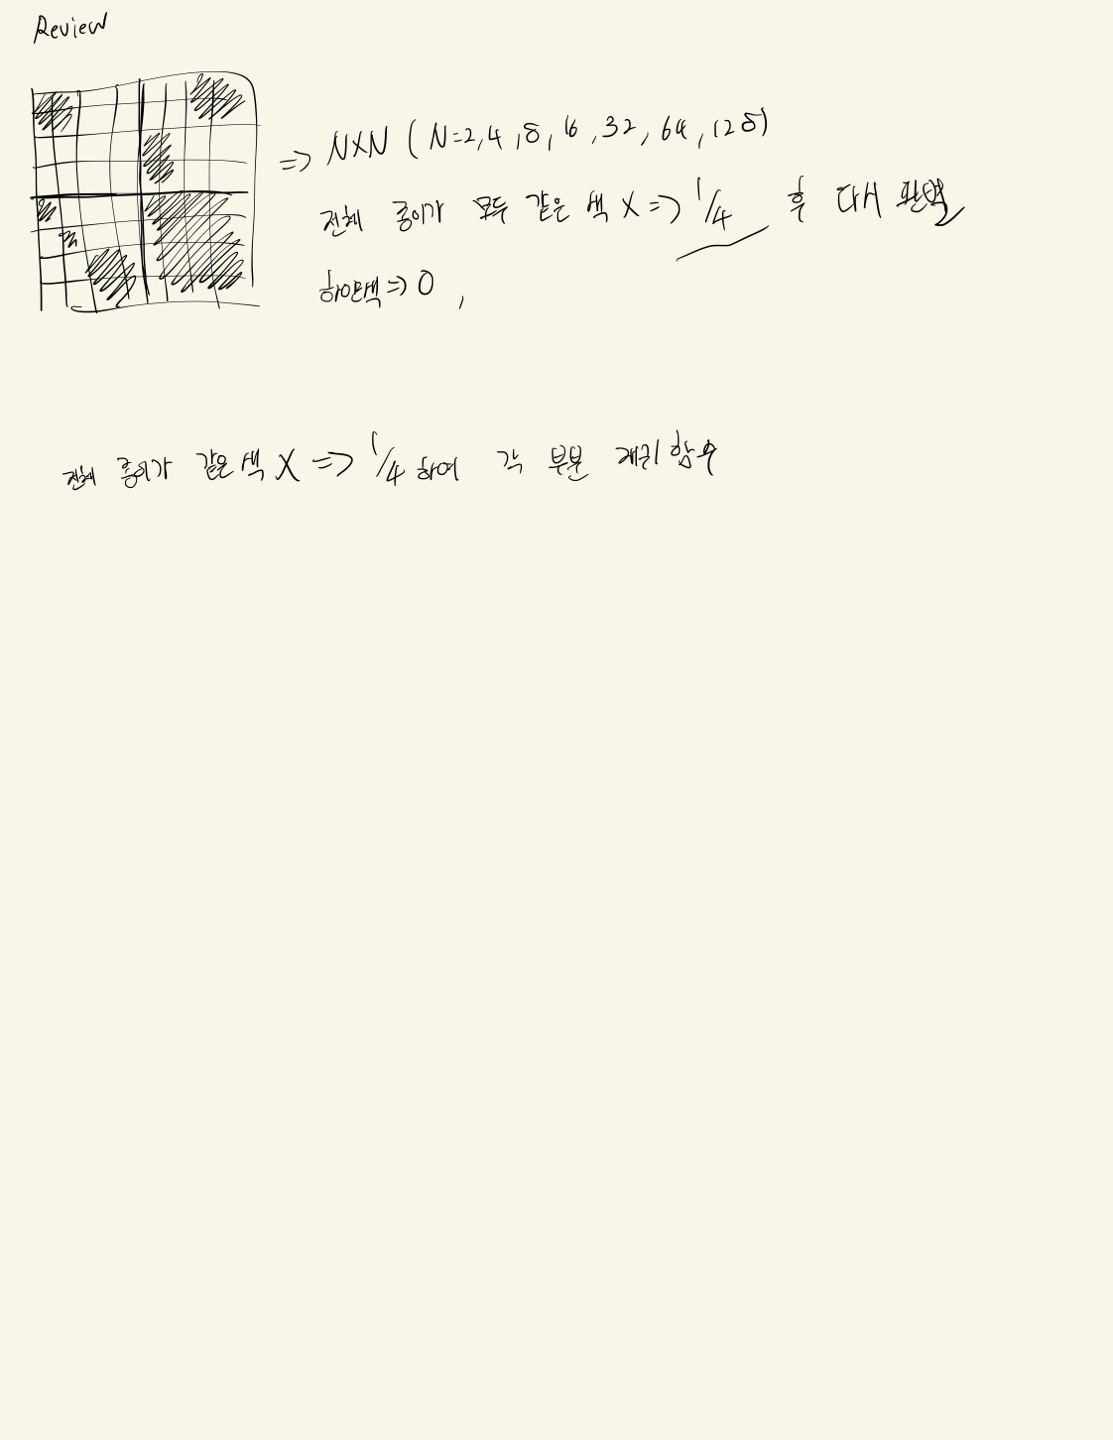 Review
=> N×N ( N=2,4,8,16,32,64,128)
전체 종이가 모두 같은 색 X => 1/4 후 다시
하얀색 => 0 ,
전체 종이가 같은 색 X => 1/4 하여 각 부분 재귀 함수